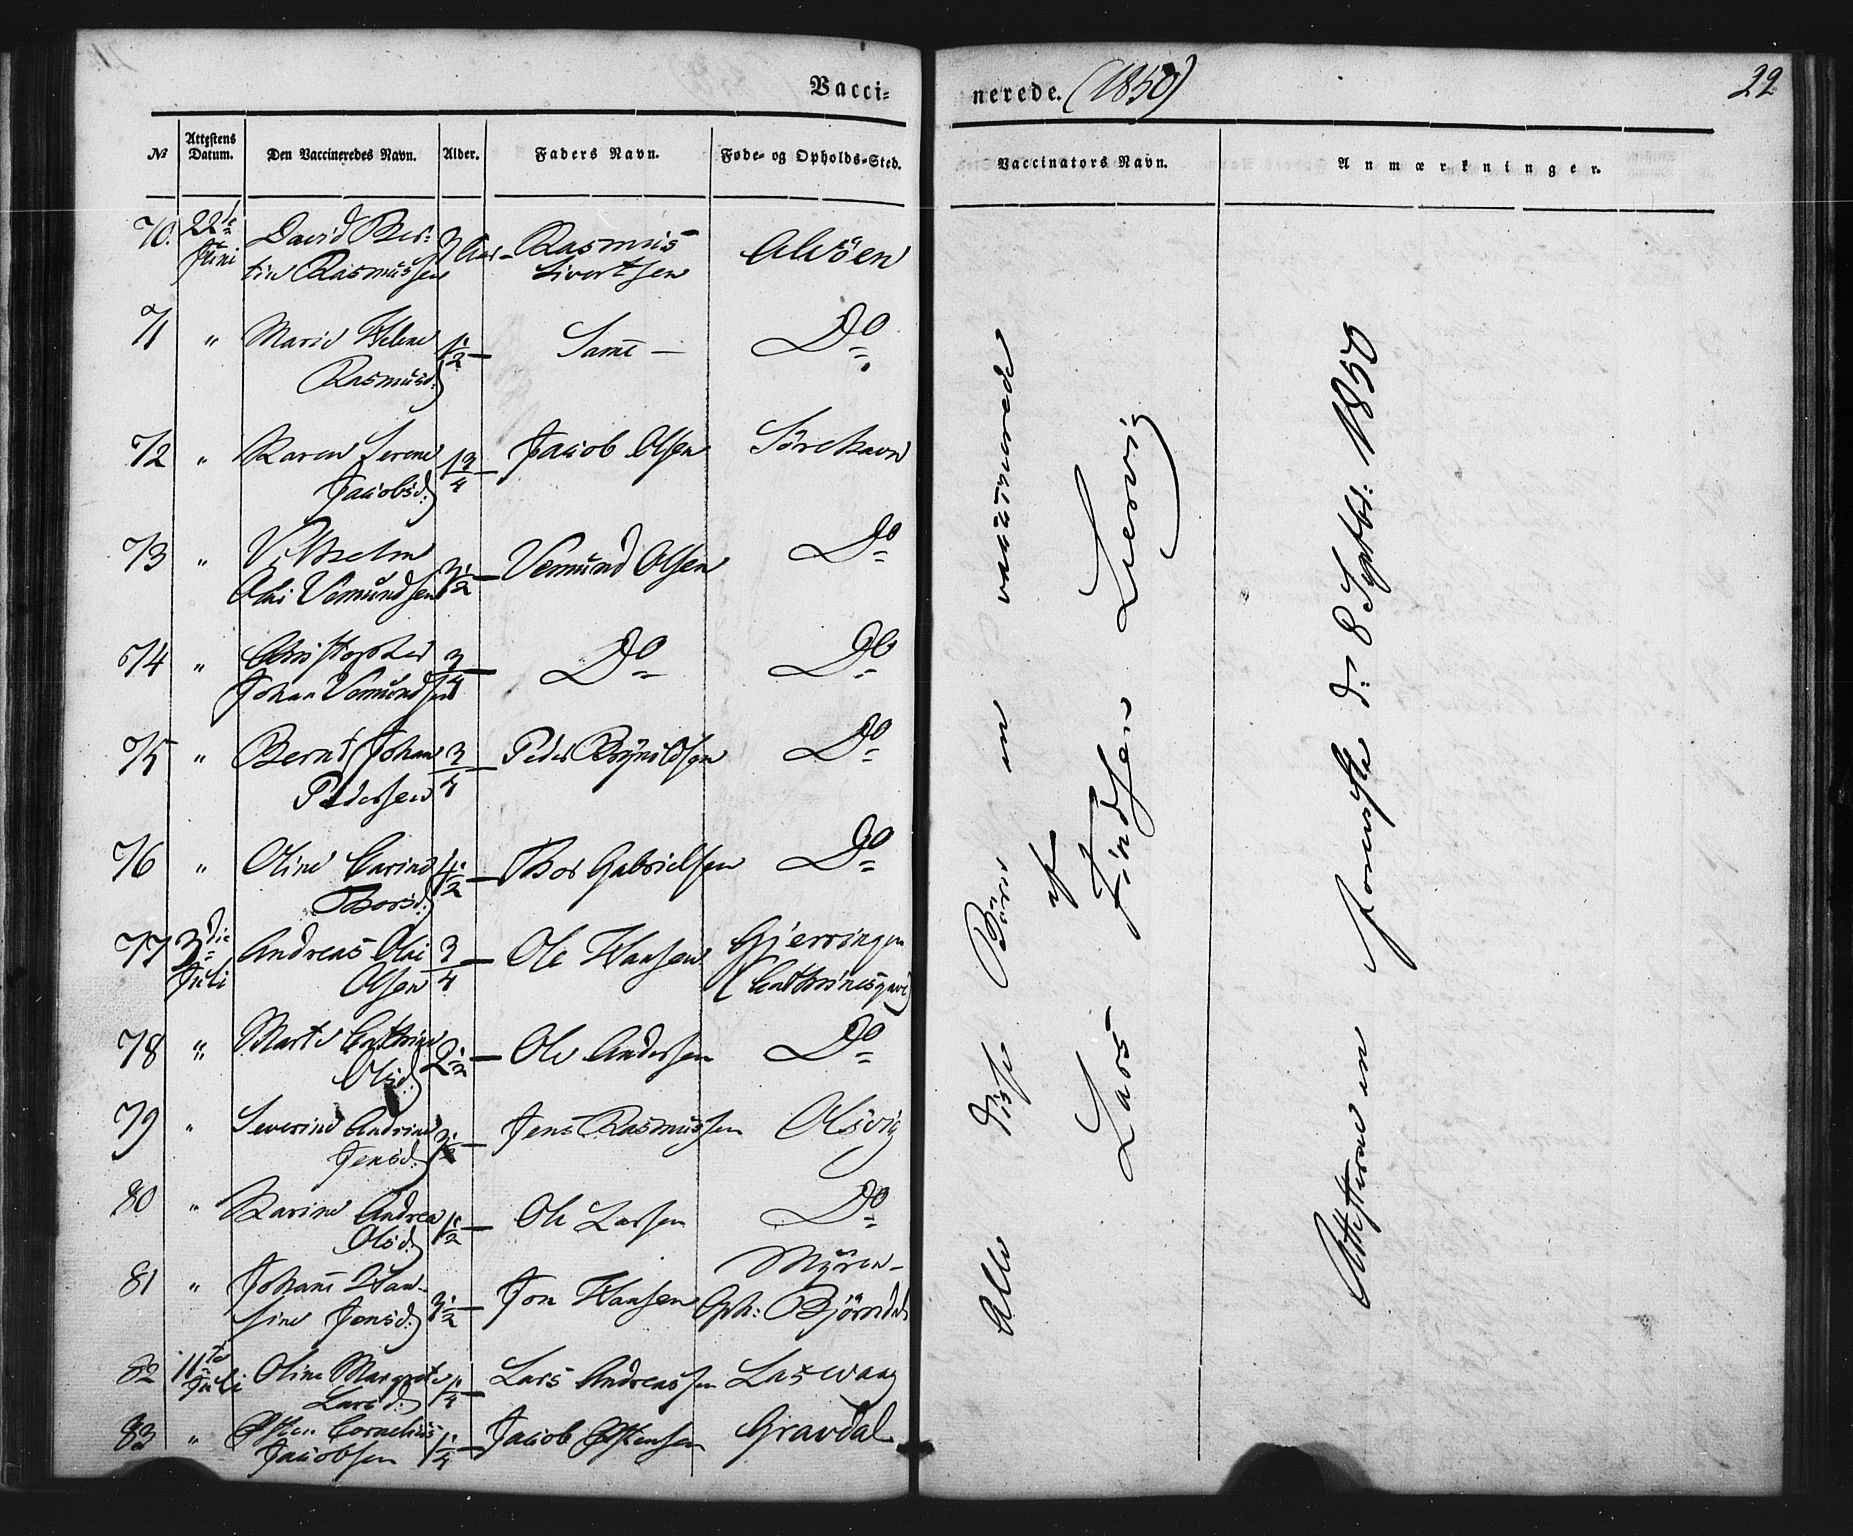 Vacci-
nerede. (1850)
22
№
Attestens Datum.
Den Vaccineredes Navn.
Alder.
Faders Navn.
Føde- og Opholds-Sted.
Vaccinators Navn.
Anmærkninger.
70. 22de Juni David Ber-
tin Rasmussen 3 Aar - Rasmus Sivertsen Alvöen
71 " Marie Helene
Rasmusd: 1 1/2 - Samme - Do
72 " Karen Serene
Jacobsd: 1 3/4 - Jacob Olsen Sörehavn
73 " Vilhelm
Olai Vemundsen 3 1/2 - Vemund Olsen Do
74 " Christopher
Johan Vemundsen 3/4 - Do Do
75 " Bernt Johan
Pedersen 3/4 - Peder Brynildsen Do
76 " Oline Carine
Thorsd: 4 1/2 - Thor Gabrielsen Do
77 3die Juli Andreas Olai
Olsen 3/4 - Ole Hansen Gjerringen
(Cathrinesgave)
78 " Marte Cathrine
Olsd: 2 1/2 - Ole Andersen Do
79 " Severine Andrine
Jensd: 1/2 - Jens Rasmussen Olsvig
80 " Karine Andrea
Olsd: 1 1/2 - Ole Larsen Do
81 " Johanne Han-
sine Jonsd: 3 1/2 - Jon Hansen Myren -
Oph: Björndal
82 11te Juli Oline Margrete
Larsd: 1 1/4 - Lars Andreassen Laxevaag
83 " Østen Cornelius
Jacobsen 1 1/4 - Jacob Østensen Gravdal
Alle disse Börn ere vaccinerede
af
Lars Findsen Lervig
Attesterne ere foreviste d: 8 Septbr: 1850